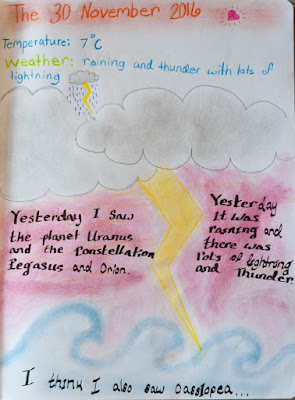 The 30 November 2016
Temperature: 7°C
Weather: raining and thunder with lots of
lightning
Yesterday I Saw
the planet Uranus
and the Constellation
Pegasus and Orion.
Yesterday
It was
raining and
there was
lots of lightning
and Thunder
I think I also saw Cassiopea...